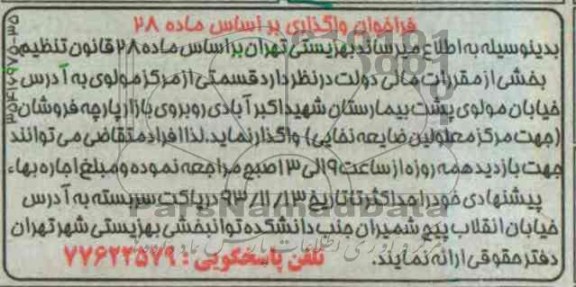 فراخوان واگذاری بر اساس ماده ۲۸
بدینوسیله به اطلاع میرساند بهزیستی تهران بر اساس ماده ۲۸ قانون تنظیم
بخشی از مقررات مالی دولت در نظر دارد قسمتی از مرکز مولوی به آدرس
خیابان مولوی پشت بیمارستان شهید اکبرآبادی روبروی بازار پارچه فروشان
(جهت مرکز معلولین ضایعه نخایی) واگذار نماید. لذا افراد متقاضی می توانند
جهت بازدید همه روزه از ساعت ۹ الی ۱۳ صبح مراجعه نموده و مبلغ اجاره بهاء
پیشنهادی خود را حداکثر تا تاریخ ۹۳/۱۱/۱۳ در پاکت سربسته به آدرس
خیابان انقلاب پیچ شمیران جنب دانشکده توانبخشی بهزیستی شهر تهران
دفتر حقوقی ارائه نمایند.   تلفن پاسخگویی: ۷۷۶۲۳۵۷۹
ParsNamadData